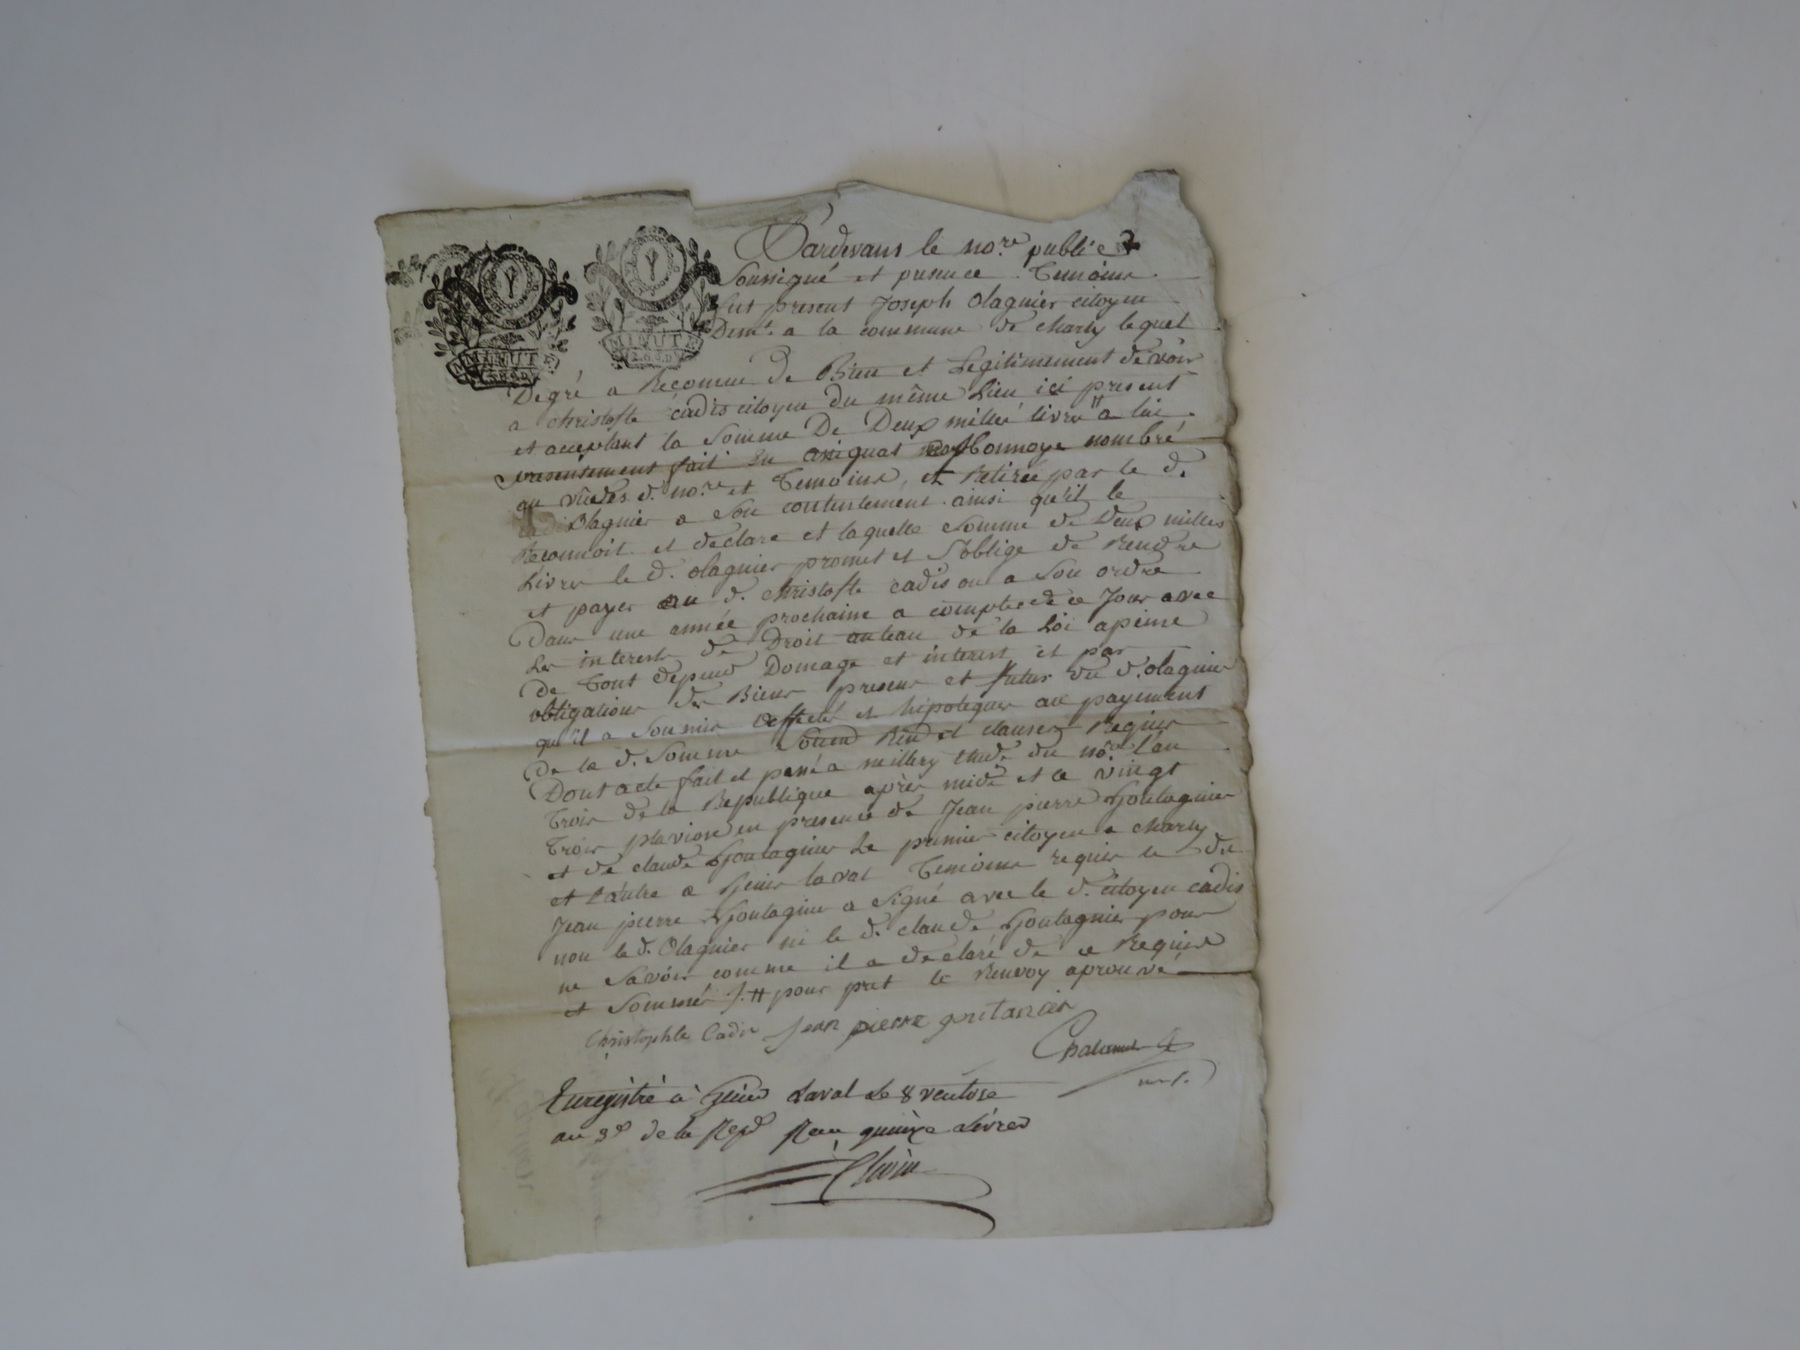 MINUTE
MINUTE
2.S.6.D
Pardevant le no.re public
Soussigné et presence Temoins
fut present Joseph Olagnier citoyen
Dem.t a la commune de charly lequel
Degré a Reconnu de Bien et Legitimement devoir
a christofle cadis citoyen du même Lieu ici present
et acceptant la Somme De Deux milles livres # a lui
presentement fait En assignat monnoye nombré
au vûe des d. no.re et Temoins, et Retirée par le d.
Olagnier a Son contentement ainsi qu'il le
Reconnoit et declare et laquelle Somme de Deux milles
Livres le d. olagnier promet et S'oblige de Rendre
et payer au d. christofle cadis ou a Son ordre
Dans une année prochaine a compter de ce Jour avec
Les interest de Droit au taux de la Loi apeine
de Tout depend Domage et interest et par
obligations de Biens presens et futur du d. olagnier
qu'il a Soumis affectés et hipotequer au payement
De la d. Somme Soumd Rend et clauses Requis
Dont acte fait et passé a millery étude du no.re L'an
Trois de la Republique après midi et le vingt
Trois pluviose en presence de Jean pierre Goutagnier
et de claude Goutagnier Le premier citoyen a charly
et L'autre a Genis laval Temoins requis le dit
Jean pierre Goutagnier a Signé avec le d. citoyen cadis
non le d. Olagnier ni le d. claude Goutagnier pour
ne Savoir comme il a declaré de ce Requis
et Sommés /. # pour pret le Renvoy aprouvé
Christophle Cadis Jean pierre goutanier
Enregistré à Genis Laval Le 8 ventose
an 3e de la Rep Reçu quinze Livres